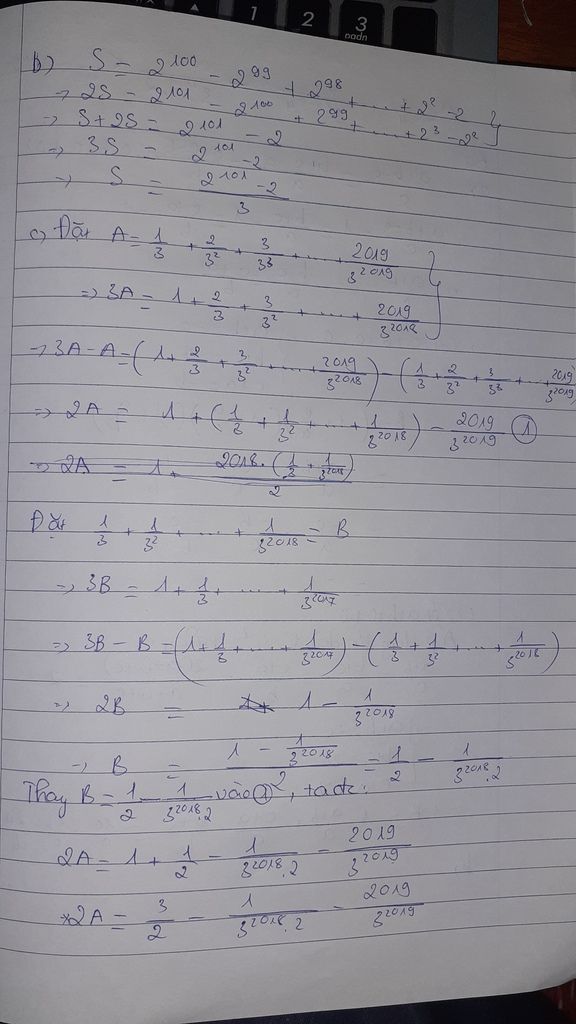 1 2 3
pgdn
b) S = 2^100 - 2^99 + 2^98 + .... + 2^2 - 2
→ 2S = 2^101 - 2^100 + 2^99 + .... + 2^3 - 2^2 }
→ S + 2S = 2^101 - 2
⇒ 3S = 2^101 - 2
→ S = (2^101 - 2)/3
c) Đặt A = 1/3 + 2/3^2 + 3/3^3 + ... + 2019/3^2019
⇒ 3A = 1 + 2/3 + 3/3^2 + .... + 2019/3^2018 }
→ 3A - A = (1 + 2/3 + 3/3^2 + ... + 2019/3^2018) - (1/3 + 2/3^2 + 3/3^3 + ... + 2019/3^2019)
⇒ 2A = 1 + (1/3 + 1/3^2 + ... + 1/3^2018) - 2019/3^2019 ①
Đặt 1/3 + 1/3^2 + .... + 1/3^2018 = B
⇒ 3B = 1 + 1/3 + .... + 1/3^2017
⇒ 3B - B = (1 + 1/3 + .... + 1/3^2017) - (1/3 + 1/3^2 + ... + 1/3^2018)
⇒ 2B = 1 - 1/3^2018
→ B = (1 - 1/3^2018)/2 = 1/2 - 1/(3^2018.2)
Thay B = 1/2 - 1/(3^2018.2) vào ①, ta đc:
2A = 1 + 1/2 - 1/(3^2018.2) - 2019/3^2019
2A = 3/2 - 1/(3^2018.2) - 2019/3^2019